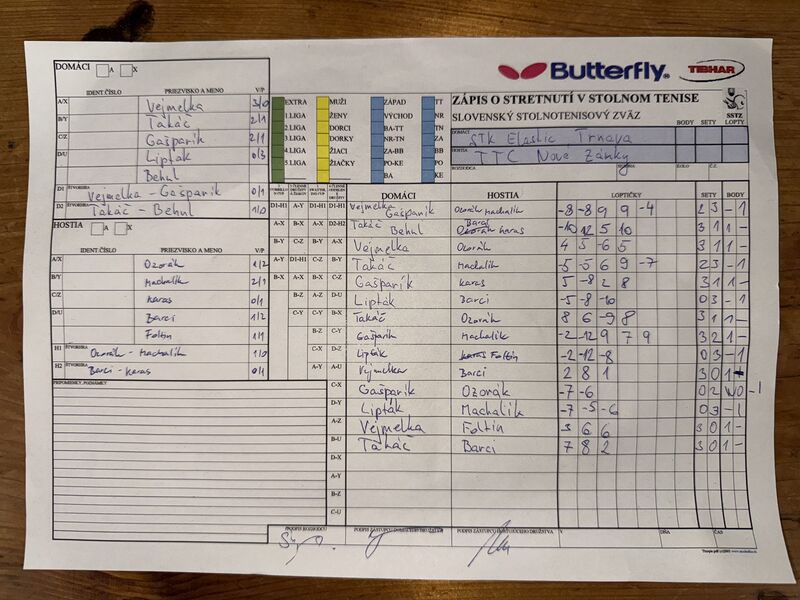 DOMÁCI A X
IDENT.ČÍSLO PRIEZVISKO A MENO V/P
A/X Vejmelka 3/0
B/Y Takáč 2/1
C/Z Gašparík 2/1
D/U Lipták 0/3
Behul
D1 ŠTVORHRA Vejmelka - Gašparík 0/1
D2 ŠTVORHRA Takáč - Behul 1/0
HOSTIA A X
IDENT.ČÍSLO PRIEZVISKO A MENO V/P
A/X Ozorák 1/2
B/Y Machalík 2/1
C/Z Karas 0/1
D/U Barci 1/2
Foltin 1/1
H1 ŠTVORHRA Ozorák - Machalík 1/0
H2 ŠTVORHRA Barci - Karas 0/1
PRIPOMIENKY, POZNÁMKY
EXTRA MUŽI ZÁPAD TT
1.LIGA ŽENY VÝCHOD NR
2.LIGA DORCI BA-TT TN
3.LIGA DORKY NR-TN ZA
4.LIGA ŽIACI ZA-BB BB
5 LIGA ŽIAČKY PO-KE PO
BA KE
Butterfly TIBHAR
ZÁPIS O STRETNUTÍ V STOLNOM TENISE
SLOVENSKÝ STOLNOTENISOVÝ ZVÄZ SSTZ
BODY SETY LOPTY
DOMÁCI STK Elastic Trnava
HOSTIA TTC Nové Zámky
ROZHODCA
DOMÁCI HOSTIA LOPTIČKY SETY BODY
D1-H1 A-Y D1-H1 D1-H1 Vejmelka Gašparík Ozorák Machalík -8 -8 9 9 -4 2 3 - 1
A-X B-X A-X D2-H2 Takáč Behul Barci Karas -10 12 5 10 3 1 1 -
B-Y C-Z B-Y A-X Vejmelka Ozorák 4 5 -6 5 3 1 1 -
A-Y D1-H1 C-Z B-Y Takáč Machalík -5 -5 6 9 -7 2 3 - 1
B-X A-X B-X C-Z Gašparík Karas 5 -8 2 8 3 1 1 -
B-Z A-Z D-U Lipták Barci -5 -8 -10 0 3 - 1
C-Y C-Y B-X Takáč Ozorák 8 6 -9 8 3 1 1 -
B-Z C-Y Gašparík Machalík -2 -12 9 7 9 3 2 1 -
C-X D-Z Lipták Foltin -2 -12 -8 0 3 - 1
A-Y A-U Vejmelka Barci 2 8 1 3 0 1 -
C-X Gašparík Ozorák -7 -6 0 2 W0 - 1
D-Y Lipták Machalík -7 -5 -6 0 3 - 1
A-Z Vejmelka Foltin 3 6 6 3 0 1 -
B-U Takáč Barci 7 8 2 3 0 1 -
D-X
A-Y
B-Z
C-U
PODPIS ROZHODCU PODPIS ZÁSTUPCU DOMÁCEHO DRUŽSTVA PODPIS ZÁSTUPCU HOSŤUJÚCEHO DRUŽSTVA V DŇA ČAS